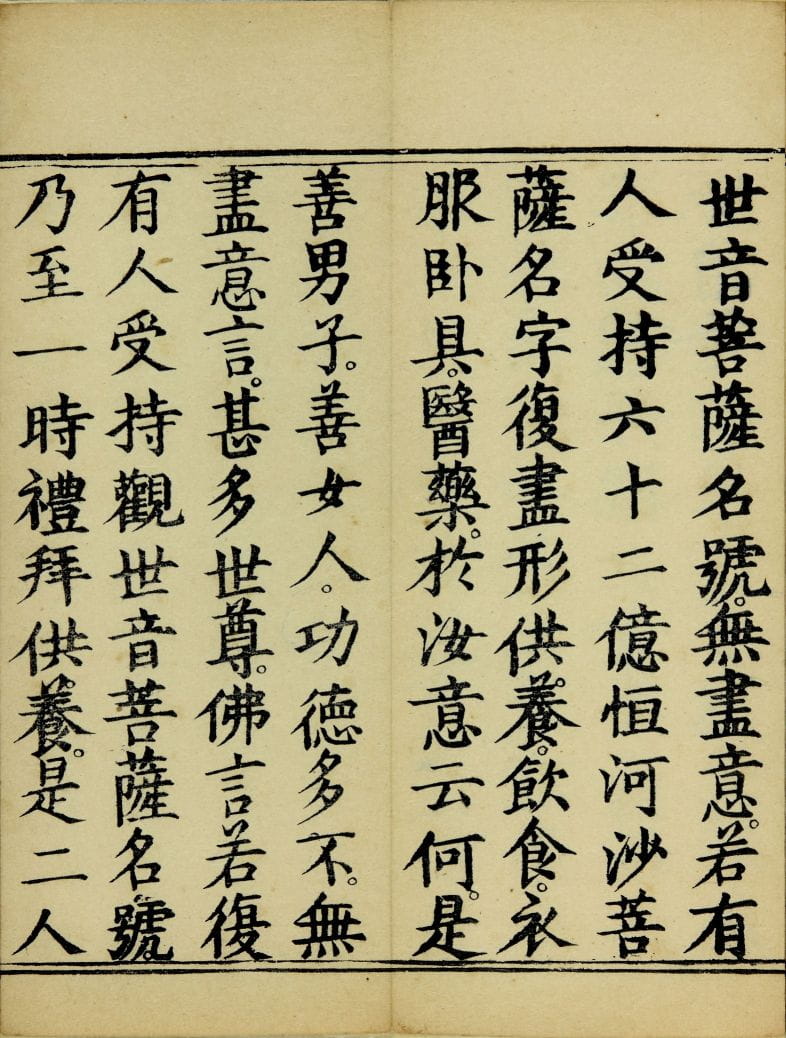 世音菩薩名號。無盡意。若有
人受持六十二億恒河沙菩
薩名字復盡形供養。飲食。衣
服卧具。醫藥。於汝意云何。是
善男子。善女人。功德多不。無
盡意言。甚多世尊。佛言若復
有人受持觀世音菩薩名號。
乃至一時禮拜供養。是二人